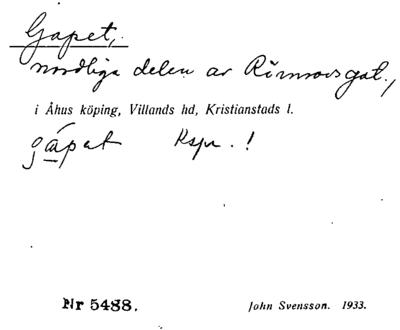 Gapet,
nordliga delen av Rännovsgat.,
i Åhus köping, Villands hd, Kristianstads l.
gápat Kspr. !
Nr 5488.
John Svensson. 1933.